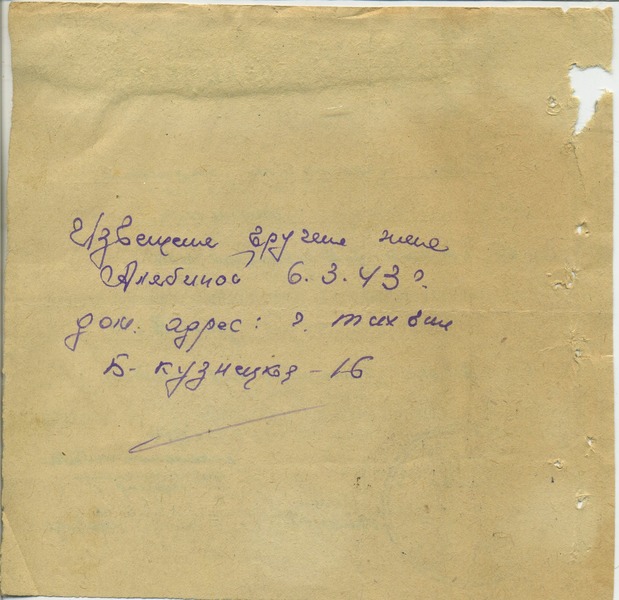 Извещение вручено жене
Алябиной 6.3.43 г.
дом. адрес: г. Тихвин
Б-Кузнецкая - 16